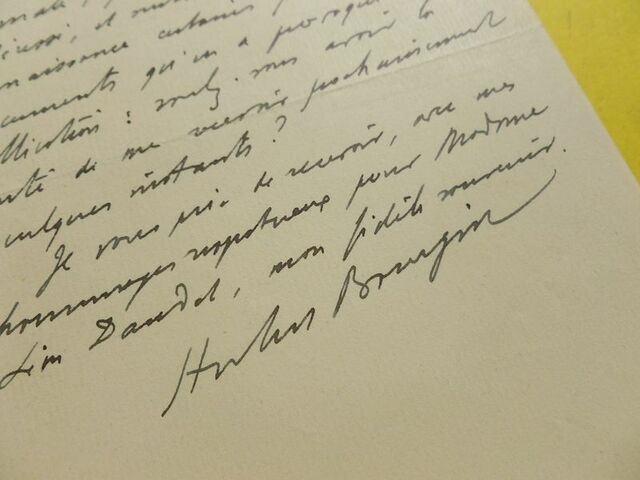 naissance
uments qu'on a
llicitons : voulez-vous avoir la
nté de me recevoir prochainement
quelques instants ?
Je vous prie de recevoir, avec mes
hommages respectueux pour Madame
Léon Daudet, mon fidèle souvenir.
Hubert Bourgin